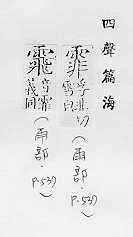 四聲篇海
霏 孚非切
雪皃
(雨部・P.537)
音霏
義同
(雨部・P.537)